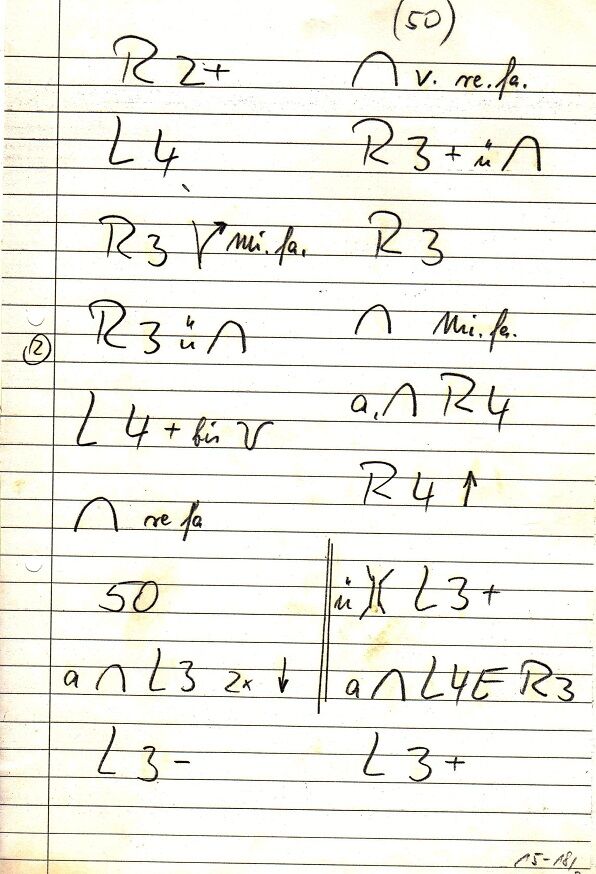 (50)
R 2+
L 4
R 3 V↗ Mi. fa.
R 3 ü ∩
12
L 4 + bis V
∩ re fa
50
a ∩ L 3 2x ↓
L 3 -
∩ v. re. fa.
R 3 + ü ∩
R 3
∩ Mi. fa.
a. ∩ R 4
R 4 ↑
ü )( L 3 +
a ∩ L 4 E R 3
L 3 +
15-18